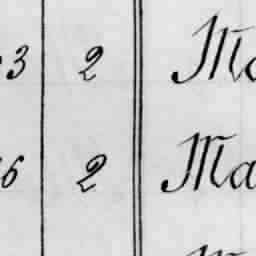 3 2 Ma
6 2 Ma